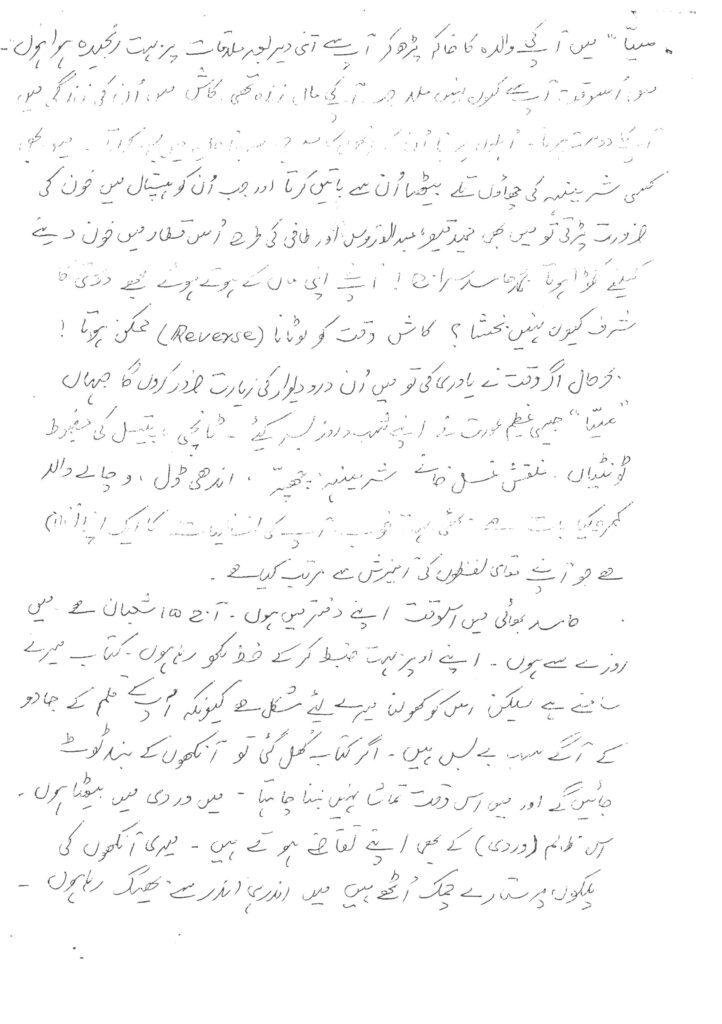 "میّا" میں آپ کی والدہ کا خاکہ پڑھ کر آپ سے اتنی دیر بعد ملاقات پر بہت رنجیدہ ہوا ہوں۔
میں اُسوقت آپ سے کیوں نہیں ملا جب آپ کی ماں زندہ تھی کاش میں اُن کی زندگی میں
آپ کا دوست ہوتا۔
کسی شرینہہ کی چھاؤں تلے بیٹھا اُن سے باتیں کرتا اور جب اُن کو ہسپتال میں خون کی
ضرورت پڑتی تو میں بھی حمید قیصر، عبدالقدوس اور طافی کی طرح اُس قطار میں خون دینے
کیلئے کھڑا ہوتا حامد سراج! آپ نے اپنی ماں کے ہوتے ہوئے مجھے دوستی کا
شرف کیوں نہیں بخشا؟ کاش وقت کو لوٹانا (Reverse) ممکن ہوتا!
بہرحال اگر وقت نے یاوری کی تو میں اُن درودیوار کی زیارت ضرور کروں گا جہاں
"میّا" جیسی عظیم عورت نے اپنے شب و روز بسر کیے۔ پیتل کی مضبوط
ٹونٹیاں، غسل خانے شرینہہ، چھپّر، اندھی ڈل، وچالے والا
کمرہ کیا بات ہے بھئی بہت خوب آپ کی کا ایک
ہے جو آپ نے لفظوں کی آمیزش سے مرتب کیا ہے۔
حامد بھائی میں اسوقت اپنے دفتر میں ہوں۔ آج ۱۵ شعبان ہے میں
روزے سے ہوں۔ اپنے اوپر بہت ضبط کر کے خط لکھ رہا ہوں۔ کتاب میرے
سامنے ہے لیکن اس کو کھولنا میرے لیئے مشکل ہے کیونکہ آپ کے قلم کے جادو
کے آگے سب بے بس ہیں۔ اگر کتاب کھل گئی تو آنکھوں کے بند ٹوٹ
جائیں گے اور میں اس وقت تماشا نہیں بننا چاہتا۔ میں وردی میں بیٹھا ہوں۔
اس ظالم (وردی) کے بھی اپنے تقاضے ہوتے ہیں۔ میری آنکھوں کی
پلکوں پر ستارے چمک اُٹھے ہیں میں اندر ہی اندر سے بھیگ رہا ہوں۔